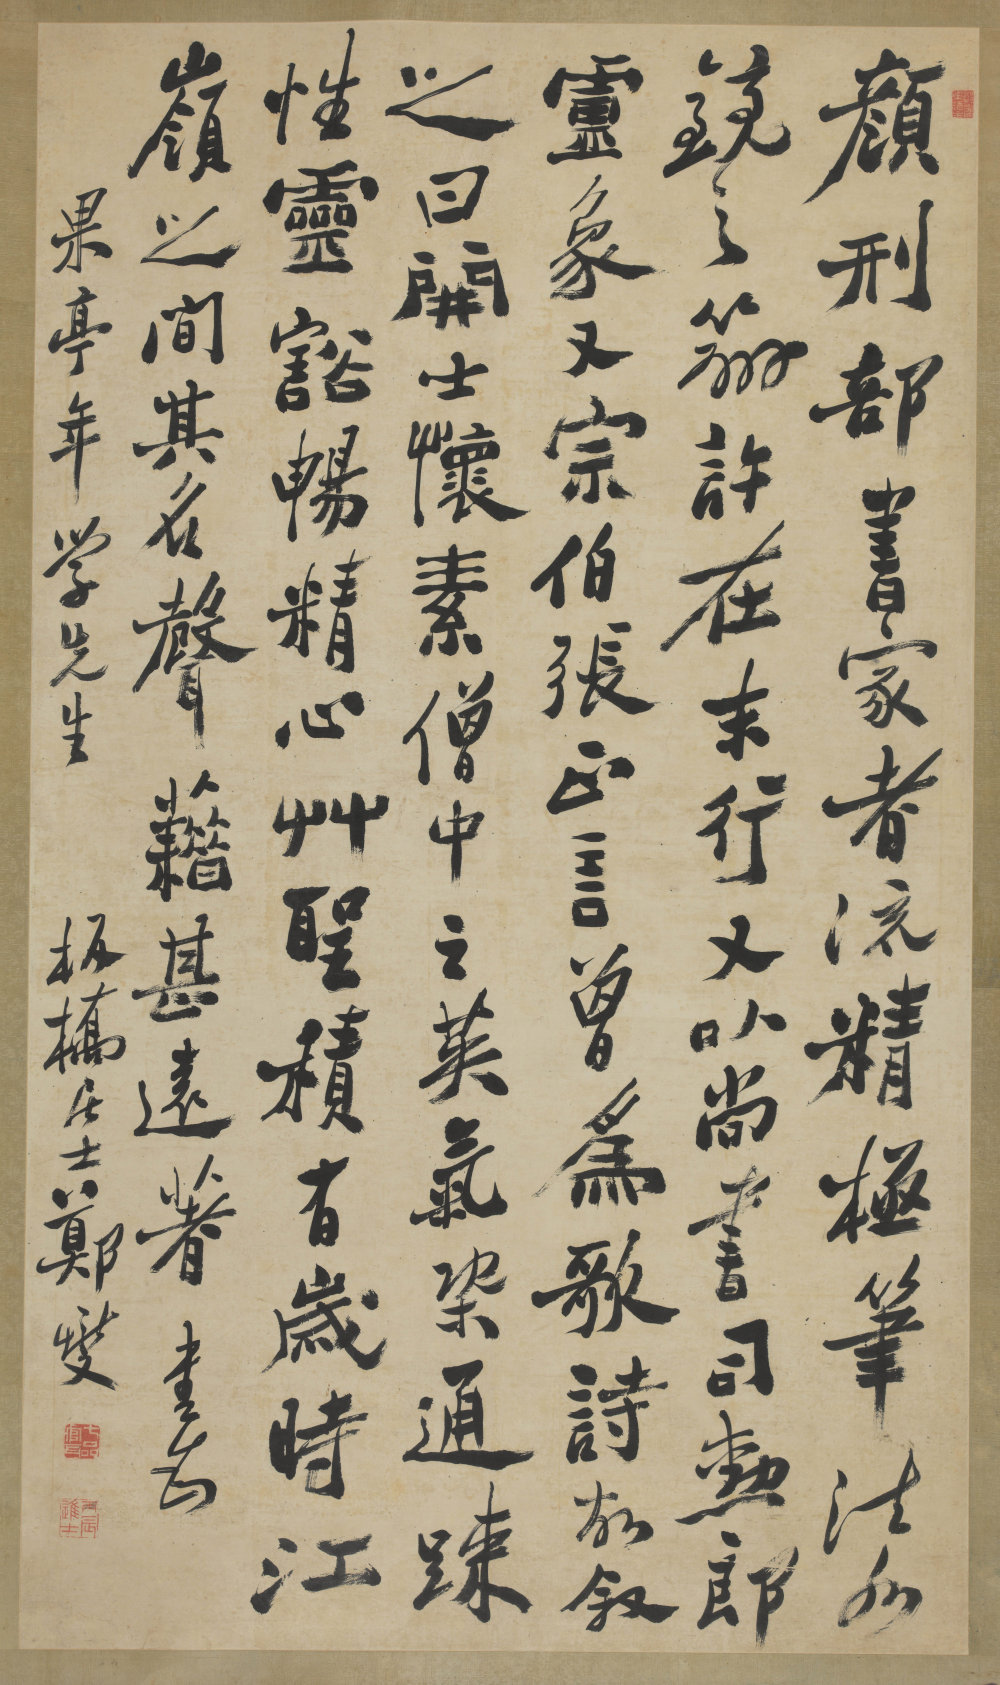 顏刑部書家者流精極筆法水
鏡之辨許在末行又以尚書司勳郎
盧象又宗伯張正言曾爲歌詩故叙
之曰開士懷素僧中之英氣槩通踈
性靈豁暢精心艸聖積有歲時江
嶺之間其名聲籍甚遠著 書
果亭年學先生 板橋居士鄭燮
七品官耳
丙辰進士